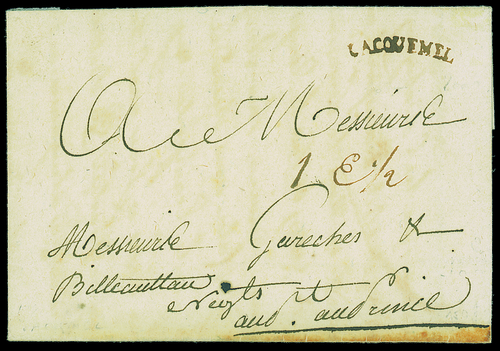 JACQUEMEL
A Messieurs
1 E 1/2
Messieurs Garesches &
Billeautteau
Negts
au Port au Prince